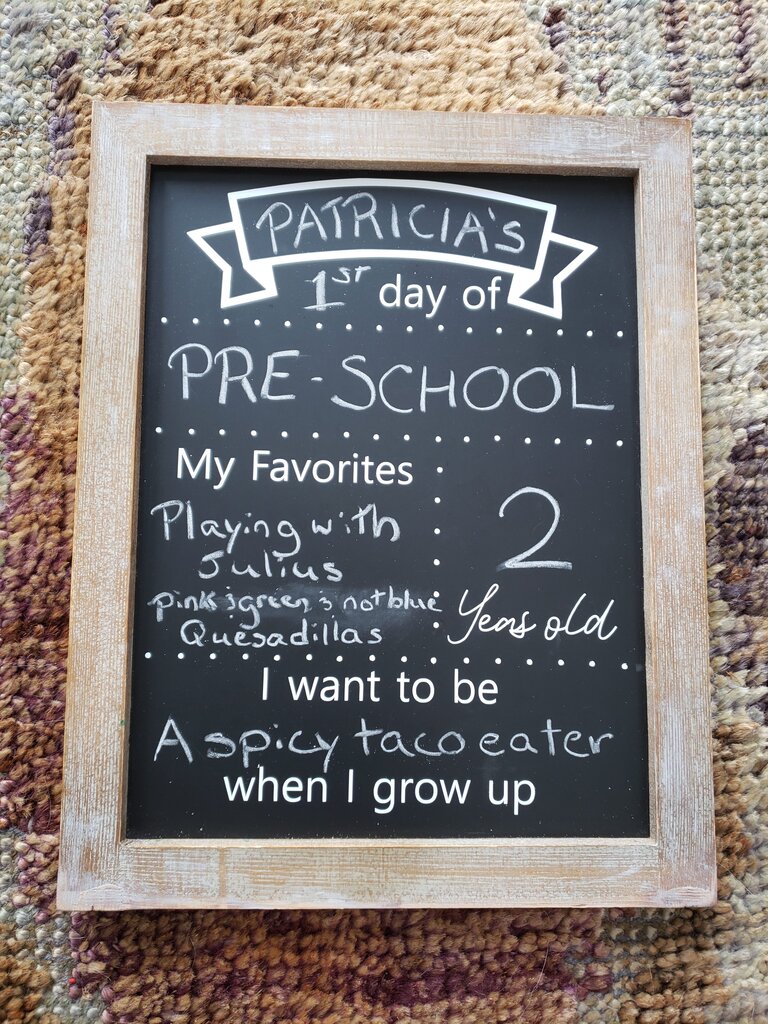 PATRICIA'S
1st day of
PRE-SCHOOL
My Favorites
Playing with
Julius
pink & green & not blue
Quesadillas
2
Years old
I want to be
A spicy taco eater
when I grow up